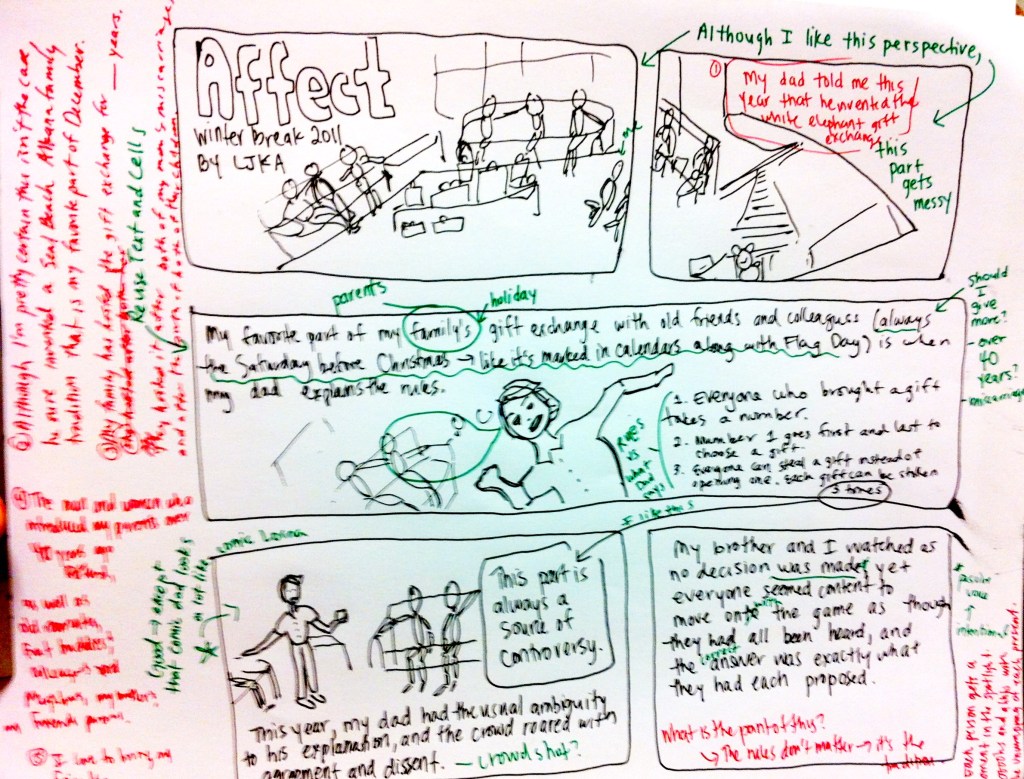 Affect
Winter break 2011
BY LJKA
Although I like this perspective,
this
part
gets
messy
①
My dad told me this
year that he invented the
white elephant gift
exchange
parents
holiday
My favorite part of my family's gift exchange with old friends and colleagues (always
the Saturday before Christmas → like it's marked in calendars along with Flag Day) is when
my dad explains the rules.
1. Everyone who brought a gift
takes a number.
2. Number 1 goes first and last to
choose a gift.
3. Everyone can steal a gift instead of
opening one. Each gift can be stolen
3 times
Rules
vs
what
Dad
says
should
I
give
more?
- over
40
years?
I like this
This part is
always a
source of
controversy.
This year, my dad had the usual ambiguity
to his explanation, and the crowd roared with
agreement and dissent. — crowd shot?
My brother and I watched as
no decision was made, yet
everyone seemed content to
move on the game as though
they had all been heard, and
the correct answer was exactly what
they had each proposed.
What is the point of this?
↳ The rules don't matter → it's the
tradition
* passive
voice
↑
intentional
each person gets a
moment in the spotlight.
Reuse Text and Cells
② Although I'm pretty certain this isn't the case,
tradition that is my favorite part of December.
③ My family has hosted the gift exchange for ___ years.
They hosted it after both of my mom's miscarriages,
and after the birth of both of the children.
④ The man and women who
introduced my parents over
40 years ago
as well as
old
⑤ I love to
Good → except
that comic dad looks
a lot like